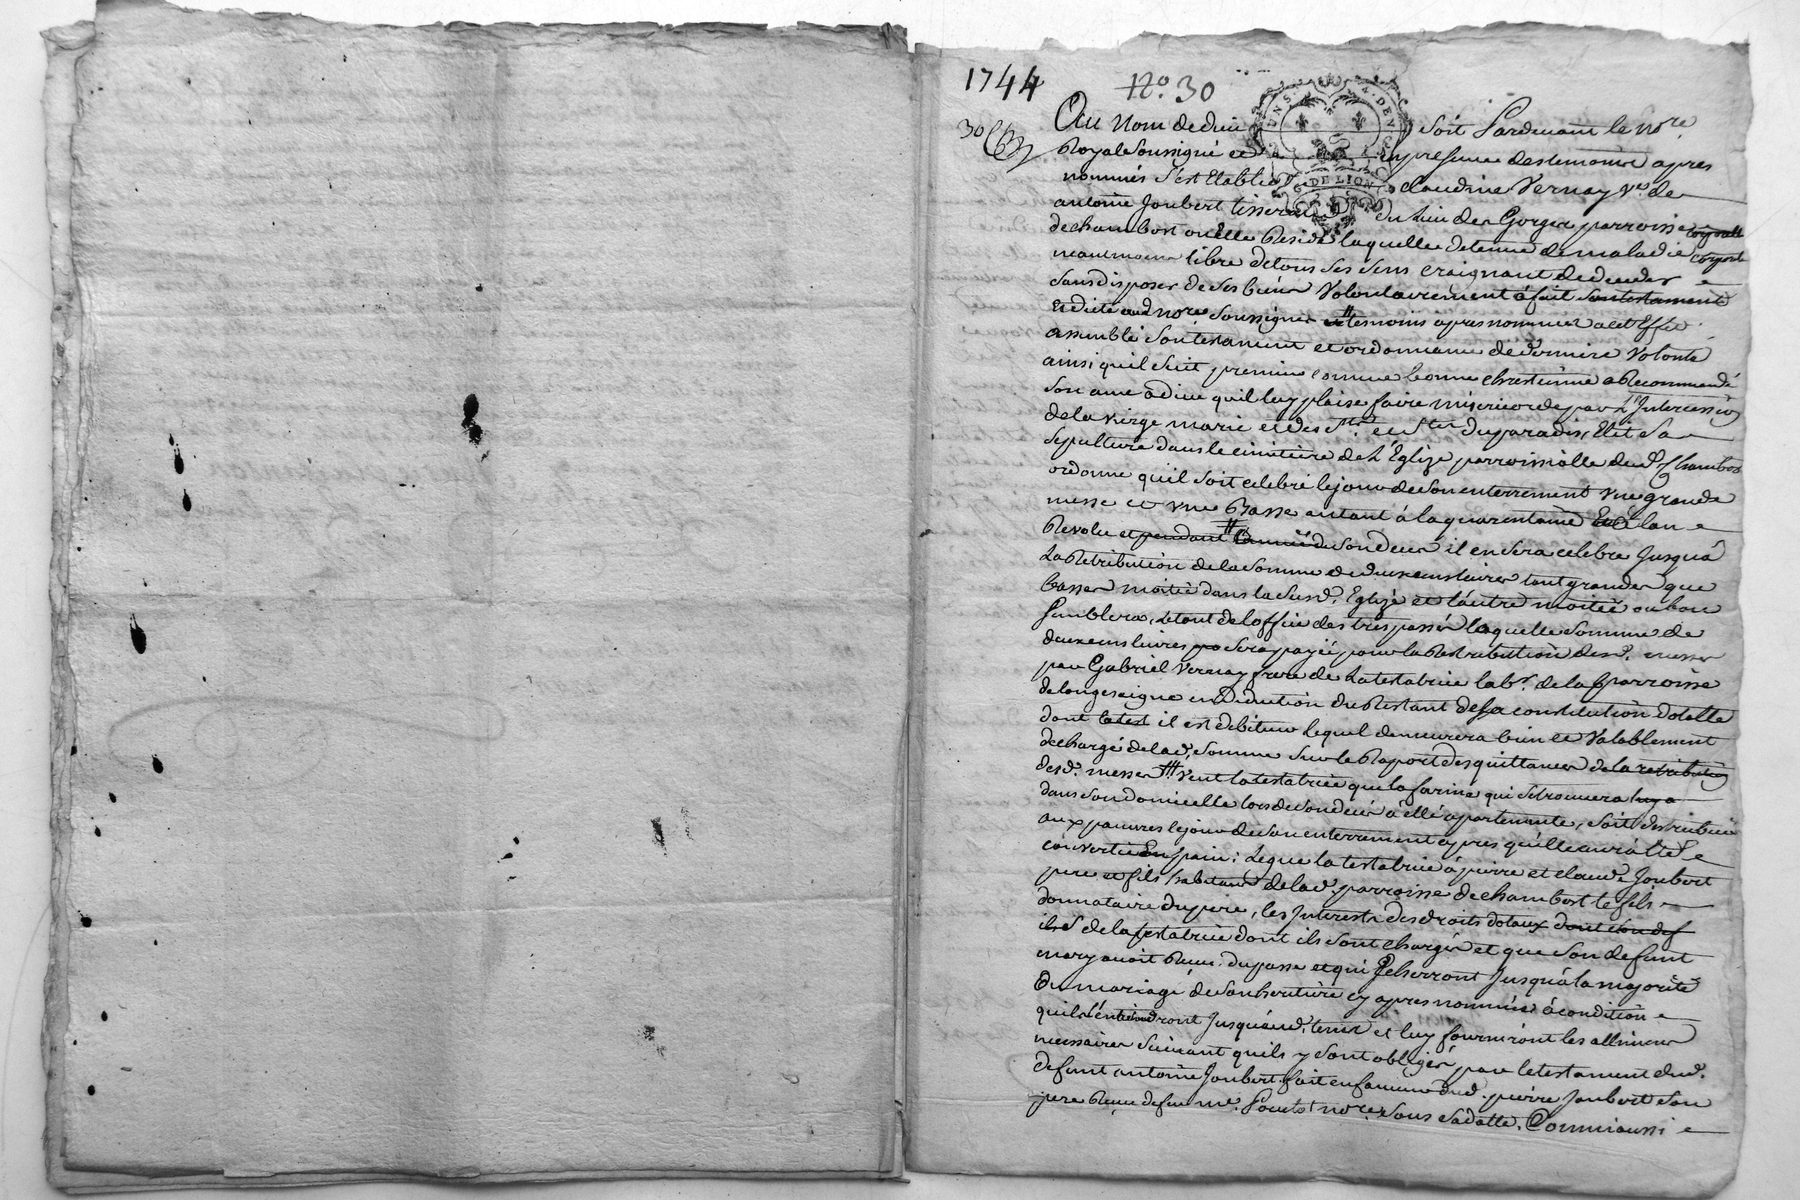 1744 No. 30
30
Au Nom de dieu soit Pardevant le No.re
Royal Soussigné et en presence des temoins apres
nommés s'est Etablie Claudine Vernay v.e de
antoine Joubert tisserand du lieu des Gorges parroisse
de chambost ou Elle Reside laquelle detenue de maladie corporelle
neantmoins libre de tous ses sens craignant de deceder
sans disposer de ses biens Volontairement à fait son testament
Et dicté aud no.re soussigné et temoins apres nommes a cet Effet
assemblé son testament et ordonnance de derniere Volonté
ainsi quil suit premier comme bonne chrestienne a Recommandé
son ame a dieu quil luy plaise faire misericorde par L'Intercession
de la vierge marie et des S.ts et S.tes du paradis, Elit sa
sepulture dans le cimetiere de L'Eglize parroissialle dud. Chambost
ordonne quil soit celebré le jour de son enterrement vne grande
messe et vne Basse autant à la quarantaine Et a lan
Revolu et pendant l'année du son deces il en sera celebre Jusqua
La Retribution de la somme de deux cens livres tant grandes que
basses moitié dans la susd. Eglize et l'autre moitié ou bon
semblera, le tout de loffice des trespassés laquelle somme de
deux cens livres sera payée pour la Retribution desd. messes
par Gabriel Vernay frere de La testatrice lab.r de la parroisse
de longesaigne en deduction du Restant de sa constitution dotalle
dont il est debiteur lequel demeurera bien et Valablement
dechargé de lad. somme sur le Raport des quittances de la retribution
desd. messes Veut la testatrice que la farine qui se trouvera
dans son domicille lors de son deces à elle apartenante, soit distribuée
aux pauvres le jour de son enterrement apres qu'elle aura été
convertie En pain; Legue la testatrice à pierre et claude Joubert
pere et fils habitans de lad. parroisse de chambost le fils
donnataire du pere, les Interests des droits dotaux dont son def
de la testatrice dont ils sont chargés et que son defunt
mary avoit Receu du passe et qui Echerront Jusqu'à la majorité
Ou mariage de son heritiere cy apres nommée à condition
quils l'entretiendront Jusqu'aud. tems et luy fourniront les allimens
necessaires suivant quils y sont obligés par le testament dud.
defunt antoine Joubert fait en faveur dud. pierre Joubert son
pere Receu no.re sous sa datte. Comme aussi